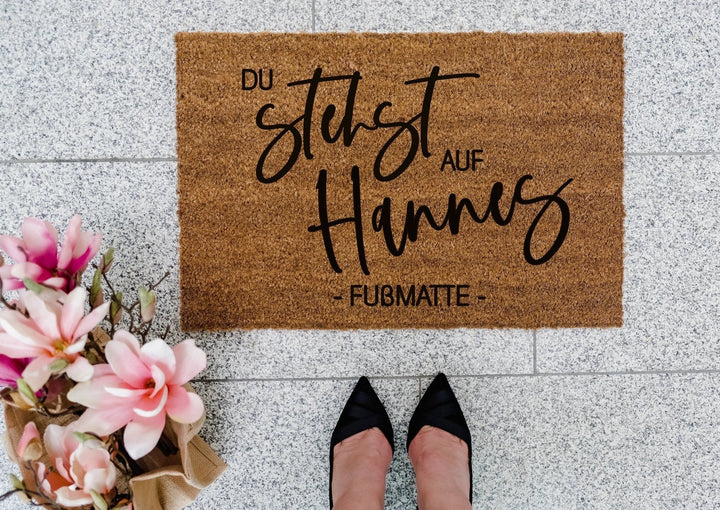 DU
stehst
AUF
Hannes
- FUßMATTE -